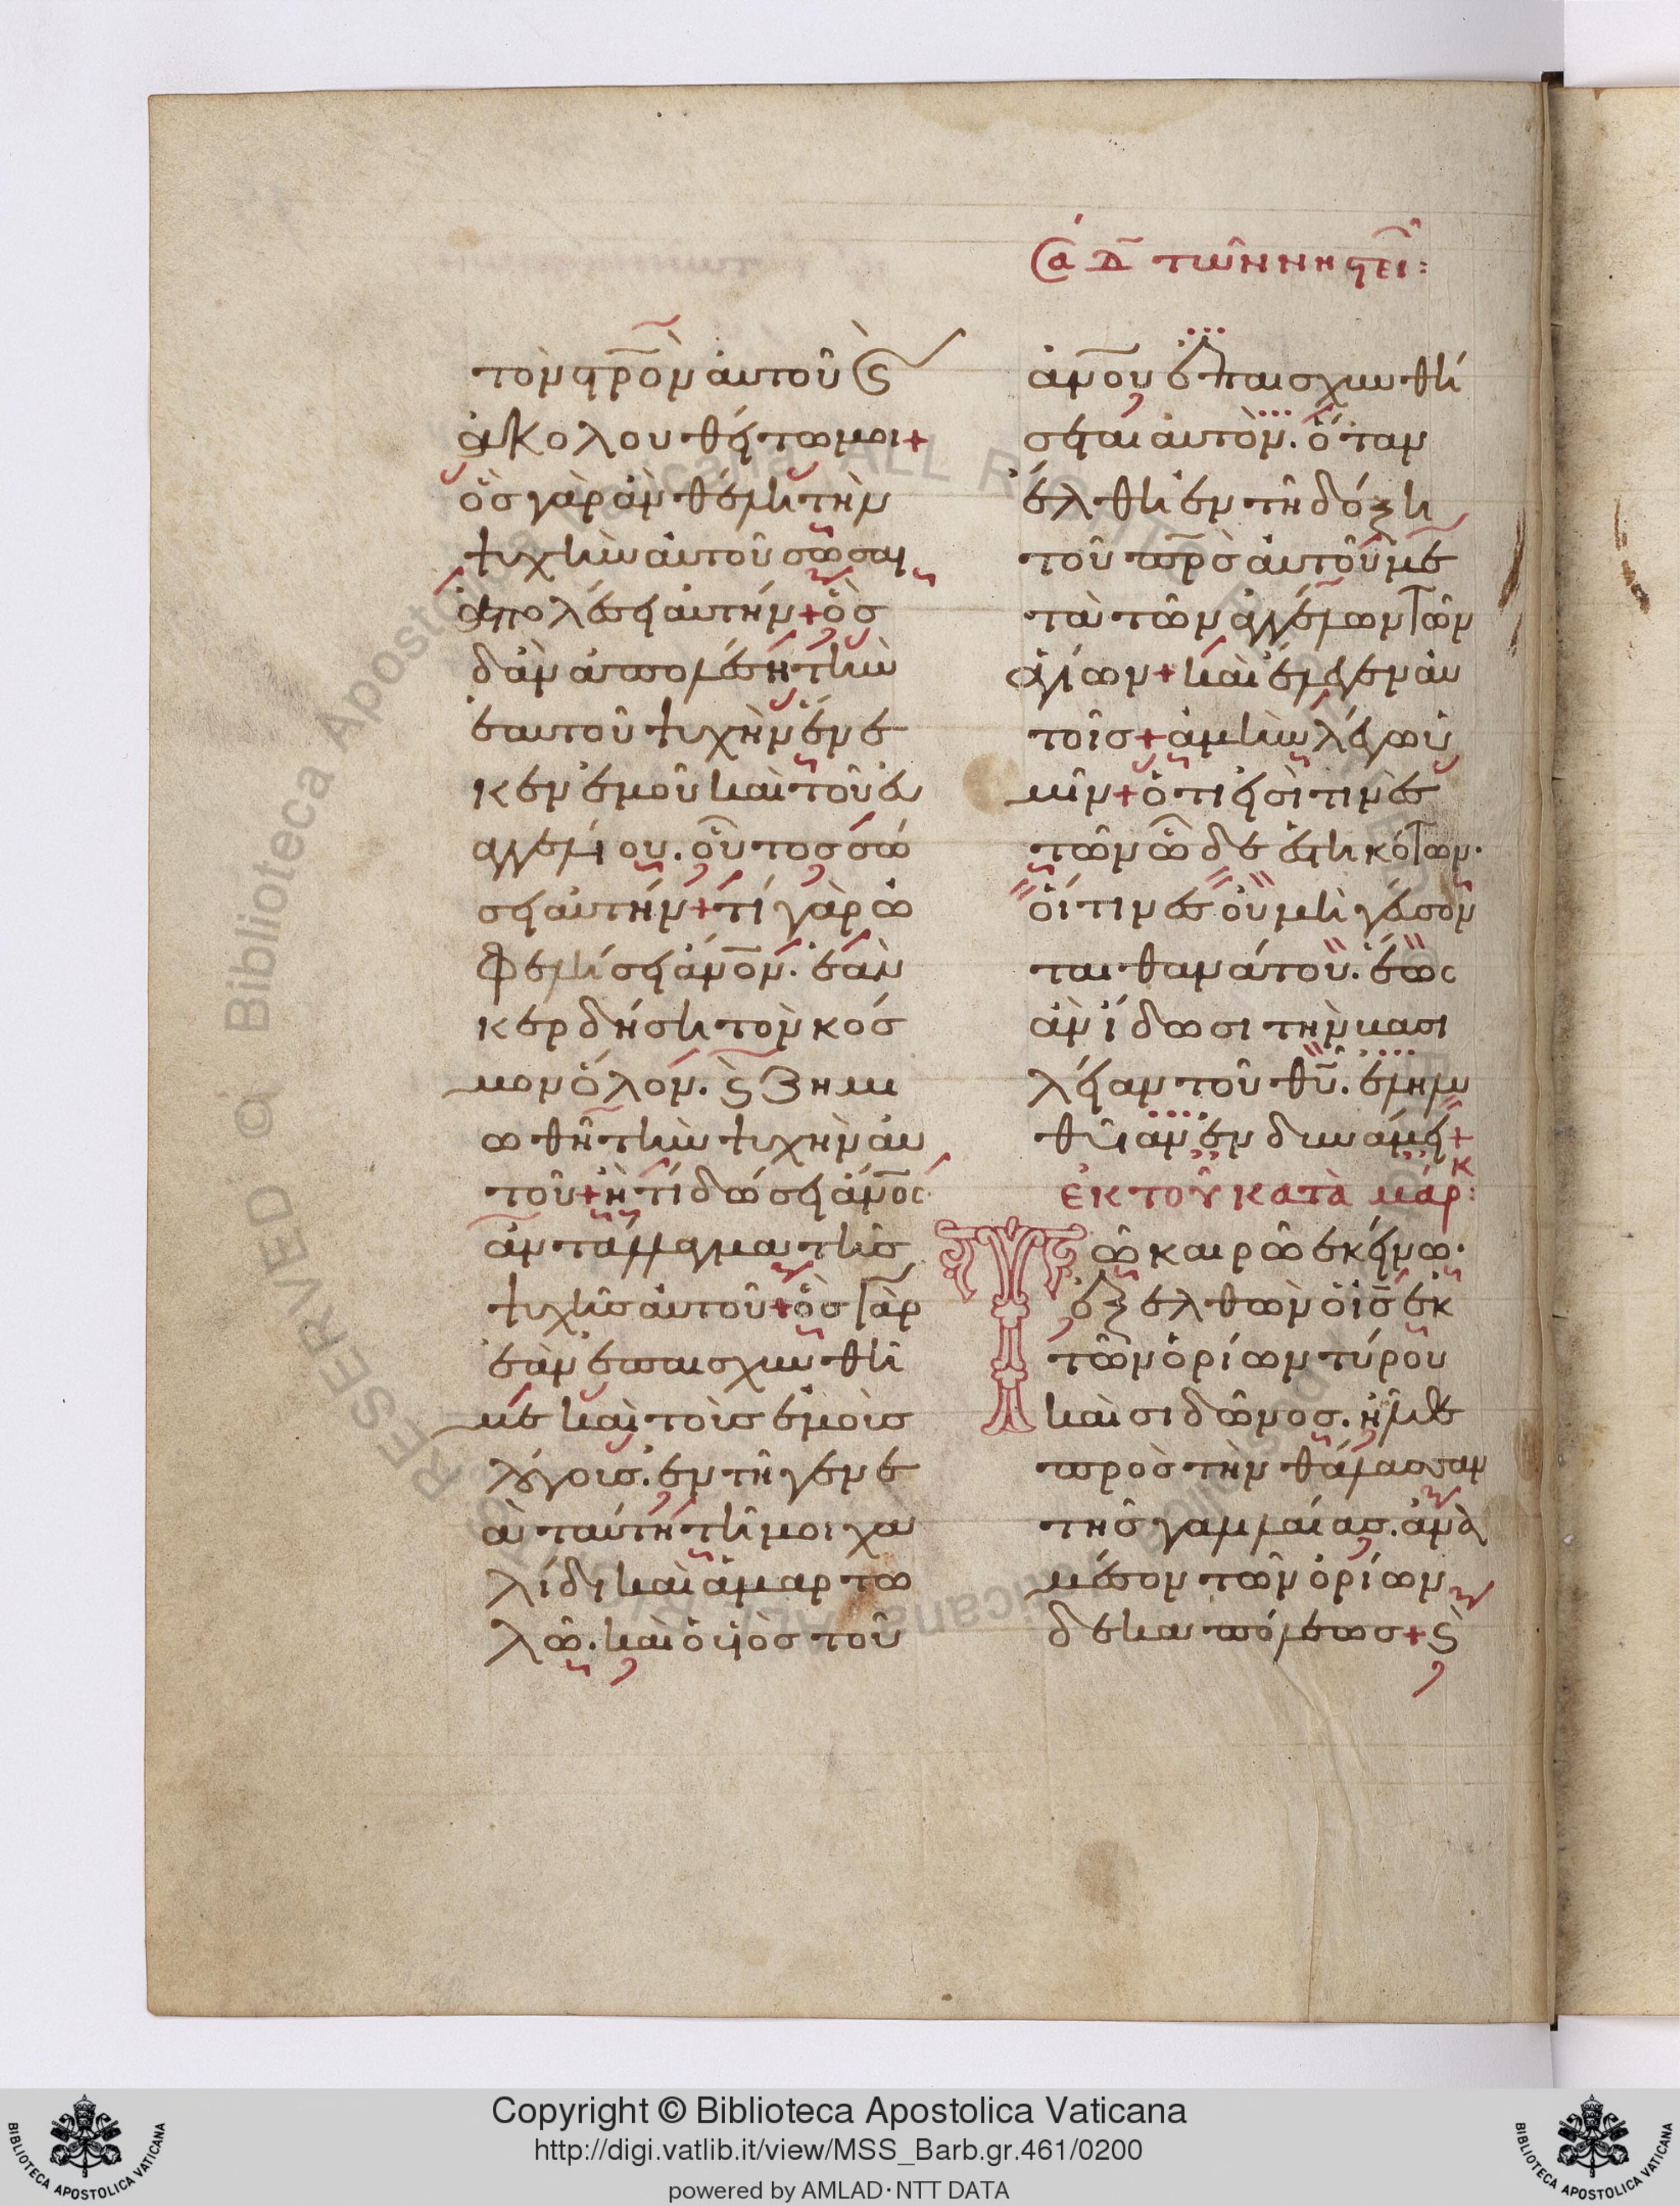 τὸν στρὸν αὐτοῦ (καὶ)
ἀκολουθείτω μοι+
ὃς γὰρ ἂν θέλη τὴν
ψυχὴν αὐτοῦ σῶσαι
ἀπολέσει αὐτήν+ ὃς
δ' ἂν ἀπολέση τὴν
ἑαυτοῦ ψυχὴν ἕνε
κεν ἐμοῦ καὶ τοῦ εὐ
αγγελίου. οὗτος σώ
σει αὐτήν+ τί γὰρ ὠ
φελήσει ἀνον. ἐὰν
κερδήση τὸν κόσ
μον ὅλον. ϛ ζημι
ωθῆ τὴν ψυχὴν αὐ
τοῦ+ ἢ τί δώσει ἀνος
ἀντάλλαγμα τῆς
ψυχῆς αὐτοῦ+ ὃς γὰρ
ἐὰν ἐπαισχυνθῆ
με καὶ τοὺς ἐμοὺς
λόγους. ἐν τῆ γενε
ᾶ ταύτη τῆ μοιχα
λίδι καὶ ἁμαρτω
λῶ. καὶ ὁ υἱὸς τοῦ
Σα Δ τῶν νηστει:
ἀνου ἐπαισχυνθή
σεται αὐτόν. ὅταν
ἔλθη ἐν τῆ δόξη
τοῦ πρσ αὐτοῦ με
τὰ τῶν ἀγγέλων τῶν
ἁγίων+ καὶ ἔλεγεν αὐ
τοῖς+ ἀμὴν λέγω ὑ
μῖν+ ὅτι εἰσί τινες
τῶν ὧδε ἑστηκότων.
οἵτινες οὐ μὴ γεύσον
ται θανάτου. ἕως
ἂν ἴδωσι τὴν βασι
λείαν τοῦ θυ. ἐληλυ
θυῖαν ἐν δυνάμει+
ἐκ τοῦ κατὰ μάρκ:
Τῶ καιρῶ ἐκείνω.
ἐξελθὼν ὁ ις ἐκ
τῶν ὁρίων τύρου
καὶ σιδῶνος. ἦλθε
πρὸς τὴν θάλασσαν
τῆς γαλιλαίας. ἀνὰ
μέσον τῶν ὁρίων
δεκαπόλεως+ ϛ
Copyright © Biblioteca Apostolica Vaticana
http://digi.vatlib.it/view/MSS_Barb.gr.461/0200
powered by AMLAD·NTT DATA